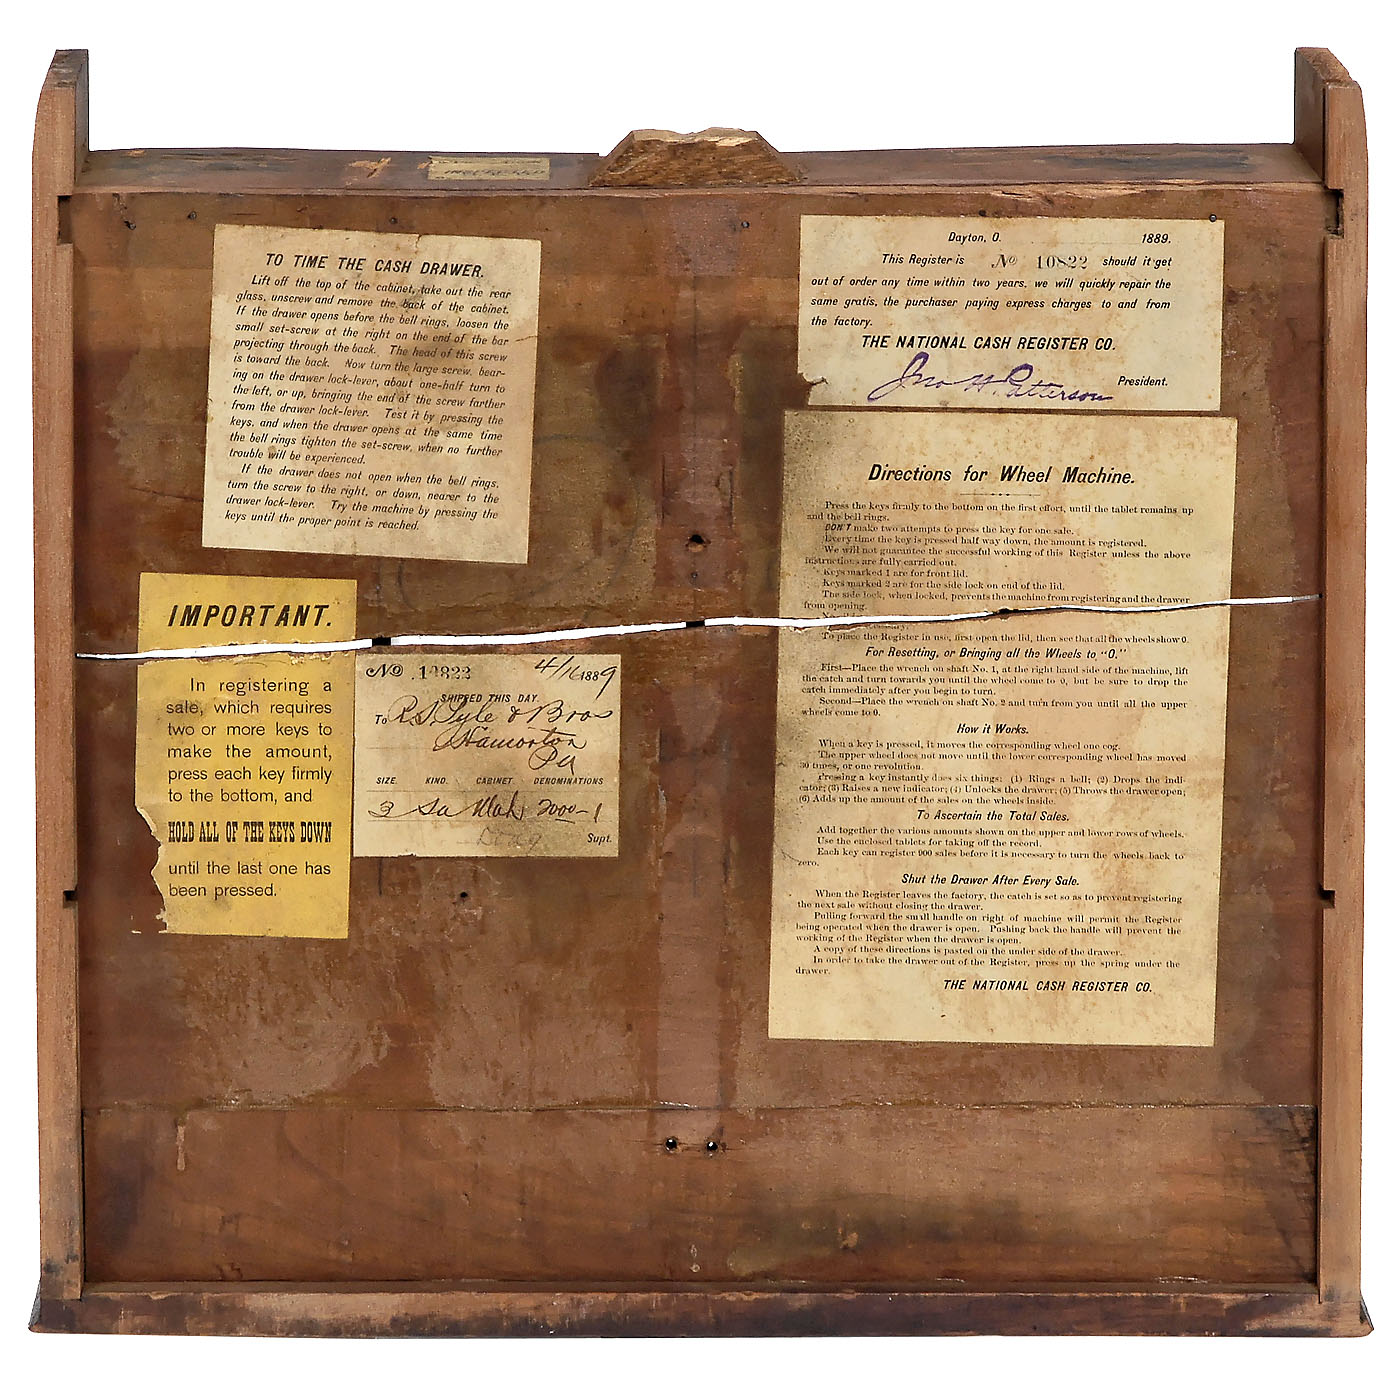 INSPECTED
TO TIME THE CASH DRAWER.
Lift off the top of the cabinet, take out the rear
glass, unscrew and remove the back of the cabinet.
If the drawer opens before the bell rings, loosen the
small set-screw at the right on the end of the bar
projecting through the back. The head of this screw
is toward the back. Now turn the large screw, bear-
ing on the drawer lock-lever, about one-half turn to
the left, or up, bringing the end of the screw farther
from the drawer lock-lever. Test it by pressing the
keys, and when the drawer opens at the same time
the bell rings tighten the set-screw, when no further
trouble will be experienced.
If the drawer does not open when the bell rings,
turn the screw to the right, or down, nearer to the
drawer lock-lever. Try the machine by pressing the
keys until the proper point is reached.
Dayton, O. 1889.
This Register is No 10822 should it get
out of order any time within two years, we will quickly repair the
same gratis, the purchaser paying express charges to and from
the factory.
THE NATIONAL CASH REGISTER CO.
Jno H. Patterson President.
IMPORTANT.
In registering a
sale, which requires
two or more keys to
make the amount,
press each key firmly
to the bottom, and
HOLD ALL OF THE KEYS DOWN
until the last one has
been pressed.
No 10822 4/16 1889
SHIPPED THIS DAY
To R. J. Lyle & Bros
Hamorton
Pa
SIZE. KIND. CABINET DENOMINATIONS
3 Sa Mah 2000-1
Supt.
Directions for Wheel Machine.
Press the keys firmly to the bottom on the first effort, until the tablet remains up
and the bell rings.
DON'T make two attempts to press the key for one sale.
Every time the key is pressed half way down, the amount is registered.
We will not guarantee the successful working of this Register unless the above
instructions are fully carried out.
Keys marked 1 are for front lid.
Keys marked 2 are for the side lock on end of the lid.
The side lock, when locked, prevents the machine from registering and the drawer
from opening.
To place the Register in use, first open the lid, then see that all the wheels show 0.
For Resetting, or Bringing all the Wheels to "0."
First—Place the wrench on shaft No. 1, at the right hand side of the machine, lift
the catch and turn towards you until the wheel come to 0, but be sure to drop the
catch immediately after you begin to turn.
Second—Place the wrench on shaft No. 2 and turn from you until all the upper
wheels come to 0.
How it Works.
When a key is pressed, it moves the corresponding wheel one cog.
The upper wheel does not move until the lower corresponding wheel has moved
30 times, or one revolution.
Pressing a key instantly does six things: (1) Rings a bell; (2) Drops the indi-
cator; (3) Raises a new indicator; (4) Unlocks the drawer; (5) Throws the drawer open;
(6) Adds up the amount of the sales on the wheels inside.
To Ascertain the Total Sales.
Add together the various amounts shown on the upper and lower rows of wheels.
Use the enclosed tablets for taking off the record.
Each key can register 900 sales before it is necessary to turn the wheels back to
zero.
Shut the Drawer After Every Sale.
When the Register leaves the factory, the catch is set so as to prevent registering
the next sale without closing the drawer.
Pulling forward the small handle on right of machine will permit the Register
being operated when the drawer is open. Pushing back the handle will prevent the
working of the Register when the drawer is open.
A copy of these directions is pasted on the under side of the drawer.
In order to take the drawer out of the Register, press up the spring under the
drawer.
THE NATIONAL CASH REGISTER CO.